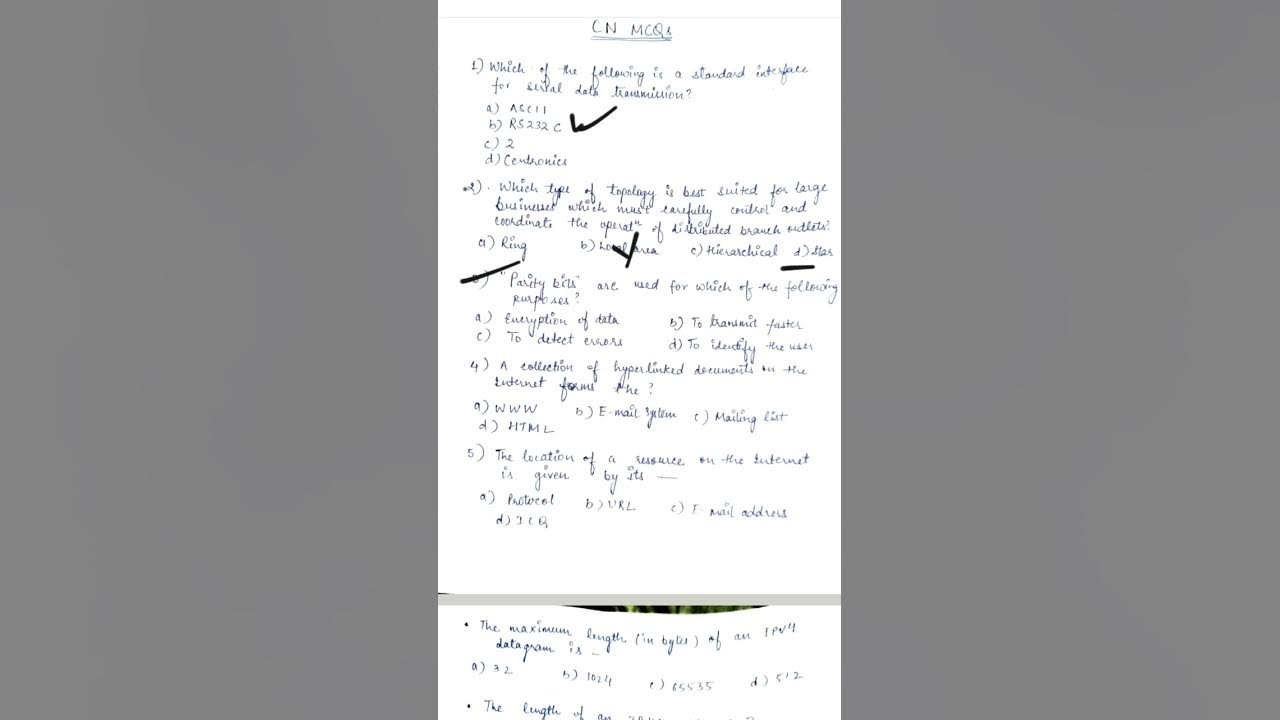 CN MCQs
1) Which of the following is a standard interface
for serial data transmission?
a) ASCII
b) RS232 C
c) 2
d) Centronics
2). Which type of topology is best suited for large
businesses which must carefully control and
coordinate the operatⁿ of distributed branch outlets?
a) Ring b) Local area c) Hierarchical d) Star
3) "Parity bits" are used for which of the following
purposes?
a) Encryption of data b) To transmit faster
c) To detect errors d) To identify the user
4) A collection of hyperlinked documents on the
Internet forms the?
a) WWW b) E-mail system c) Mailing list
d) HTML
5) The location of a resource on the Internet
is given by its —
a) Protocol b) URL c) E-mail address
d) ICQ
• The maximum length (in bytes) of an IPV4
datagram is –
a) 32 b) 1024 c) 65535 d) 512
• The length of an